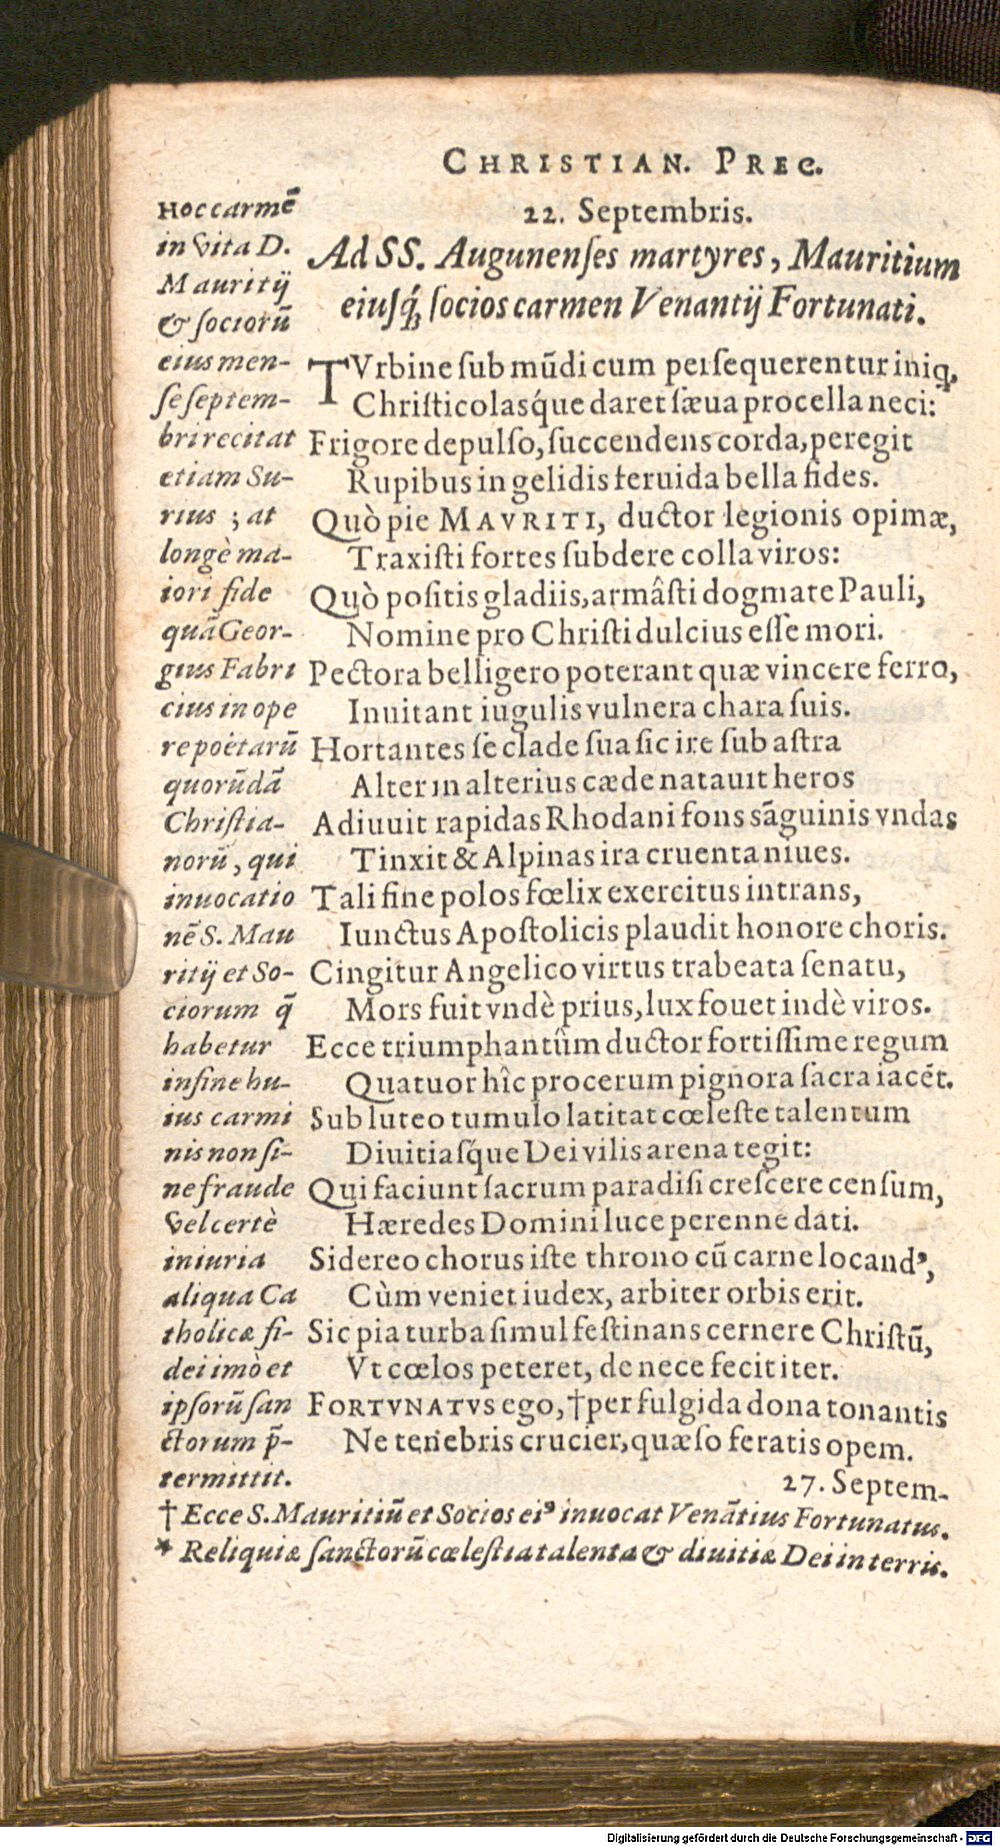 CHRISTIAN. PREC.
22. Septembris.
Ad SS. Augunenſes martyres, Mauritium
eiuſq́; ſocios carmen Venantij Fortunati.
TVrbine ſub mũdi cum perſequerentur iniq,
Chriſticolasq́ue daret ſæua procella neci:
Frigore depulſo, ſuccendens corda, peregit
Rupibus in gelidis feruida bella fides.
Quò pie MAVRITI, ductor legionis opimæ,
Traxiſti fortes ſubdere colla viros:
Quò poſitis gladiis, armâſti dogmate Pauli,
Nomine pro Chriſti dulcius eſſe mori.
Pectora belligero poterant quæ vincere ferro,
Inuitant iugulis vulnera chara ſuis.
Hortantes ſe clade ſua ſic ire ſub aſtra
Alter in alterius cæde natauit heros
Adiuuit rapidas Rhodani fons sãguinis vndas
Tinxit & Alpinas ira cruenta niues.
Tali fine polos fœlix exercitus intrans,
Iunctus Apoſtolicis plaudit honore choris.
Cingitur Angelico virtus trabeata ſenatu,
Mors fuit vndè prius, lux fouet indè viros.
Ecce triumphantûm ductor fortiſſime regum
Quatuor hîc procerum pignora ſacra iacẽt.
Sub luteo tumulo latitat cœleſte talentum
Diuitiaſq́ue Dei vilis arena tegit:
Qui faciunt ſacrum paradiſi creſcere cenſum,
Hæredes Domini luce perenne dati.
Sidereo chorus iſte throno cũ carne locandꝰ,
Cùm veniet iudex, arbiter orbis erit.
Sic pia turba ſimul feſtinans cernere Chriſtũ,
Vt cœlos peteret, de nece fecit iter.
FORTVNATVS ego, †per fulgida dona tonantis
Ne tenebris crucier, quæſo feratis opem.
27. Septem-
Hoc carmẽ
in vita D.
Mauritij
& ſociorũ
eius men-
ſe ſeptem-
bri recitat
etiam Su-
rius ; at
longè ma-
iori fide
quã Geor-
gius Fabri
cius in ope
re poëtarũ
quorũdã
Chriſtia-
norũ, qui
inuocatio
nẽ S. Mau
ritij et So-
ciorum q̃
habetur
in fine hu-
ius carmi
nis non ſi-
ne fraude
vel certè
iniuria
aliqua Ca
tholicæ fi-
dei imò et
ipſorũ ſan
ctorum p̃-
termittit.
† Ecce S. Mauritiũ et Socios eiꝰ inuocat Venãtius Fortunatus.
* Reliquiæ ſanctorũ cœleſtia talenta & diuitiæ Dei in terris.
Digitalisierung gefördert durch die Deutsche Forschungsgemeinschaft - DFG